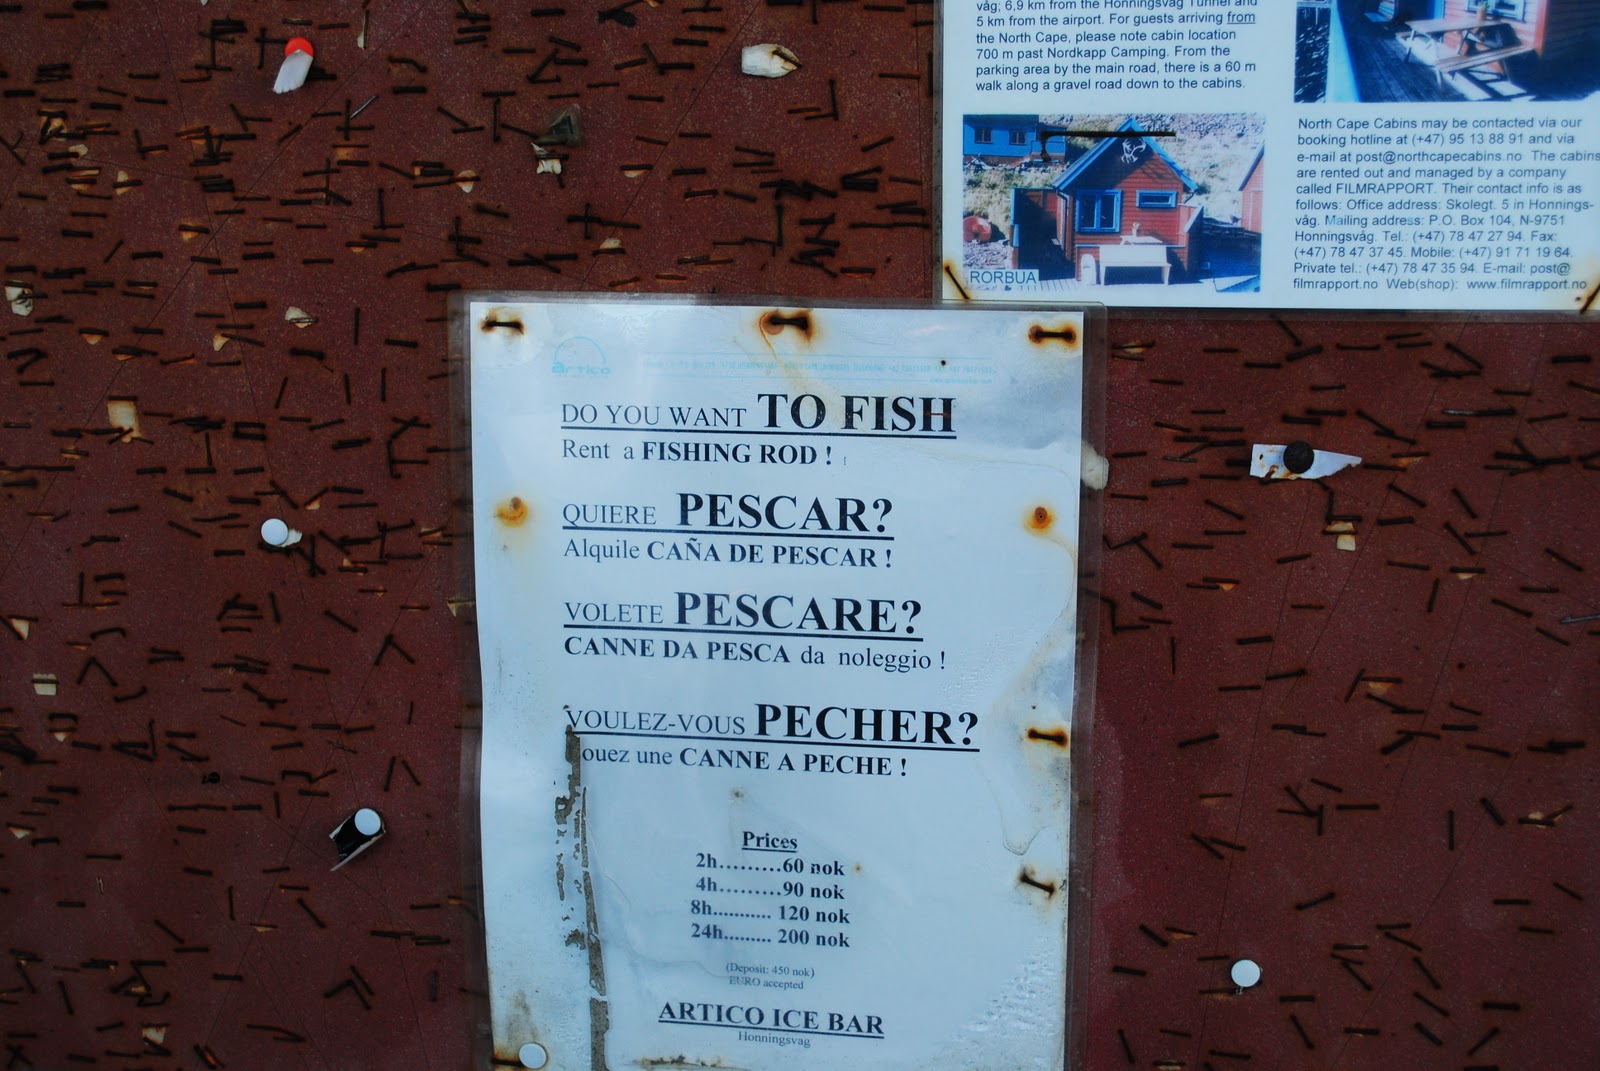 våg; 6,9 km from the Honningsvåg Tunnel and
5 km from the airport. For guests arriving from
the North Cape, please note cabin location
700 m past Nordkapp Camping. From the
parking area by the main road, there is a 60 m
walk along a gravel road down to the cabins.
RORBUA
North Cape Cabins may be contacted via our
booking hotline at (+47) 95 13 88 91 and via
e-mail at post@northcapecabins.no The cabins
are rented out and managed by a company
called FILMRAPPORT. Their contact info is as
follows: Office address: Skolegt. 5 in Honnings-
våg. Mailing address: P.O. Box 104, N-9751
Honningsvåg. Tel.: (+47) 78 47 27 94. Fax:
(+47) 78 47 37 45. Mobile: (+47) 91 71 19 64.
Private tel.: (+47) 78 47 35 94. E-mail: post@
filmrapport.no Web(shop): www.filmrapport.no
artico
DO YOU WANT TO FISH
Rent a FISHING ROD !
QUIERE PESCAR?
Alquile CAÑA DE PESCAR !
VOLETE PESCARE?
CANNE DA PESCA da noleggio !
VOULEZ-VOUS PECHER?
ouez une CANNE A PECHE !
Prices
2h.........60 nok
4h.........90 nok
8h........... 120 nok
24h......... 200 nok
(Deposit: 450 nok)
EURO accepted
ARTICO ICE BAR
Honningsvag